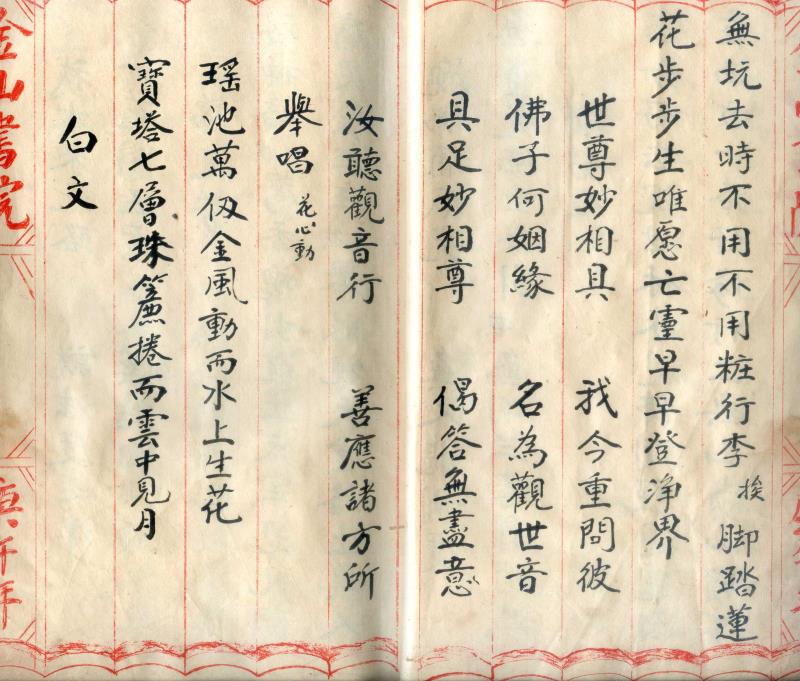 無坑去時不用不用粧行李 挨 脚踏蓮
花步步生唯愿亡靈早早登净界
世尊妙相具 我今重問彼
佛子何姻緣 名為觀世音
具足妙相尊 偈答無盡意
汝聽觀音行 善應諸方所
舉唱 花心動
瑶池萬仭金風動而水上生花
寶塔七層珠簾捲而雲中見月
白文
金山書院
庚午年